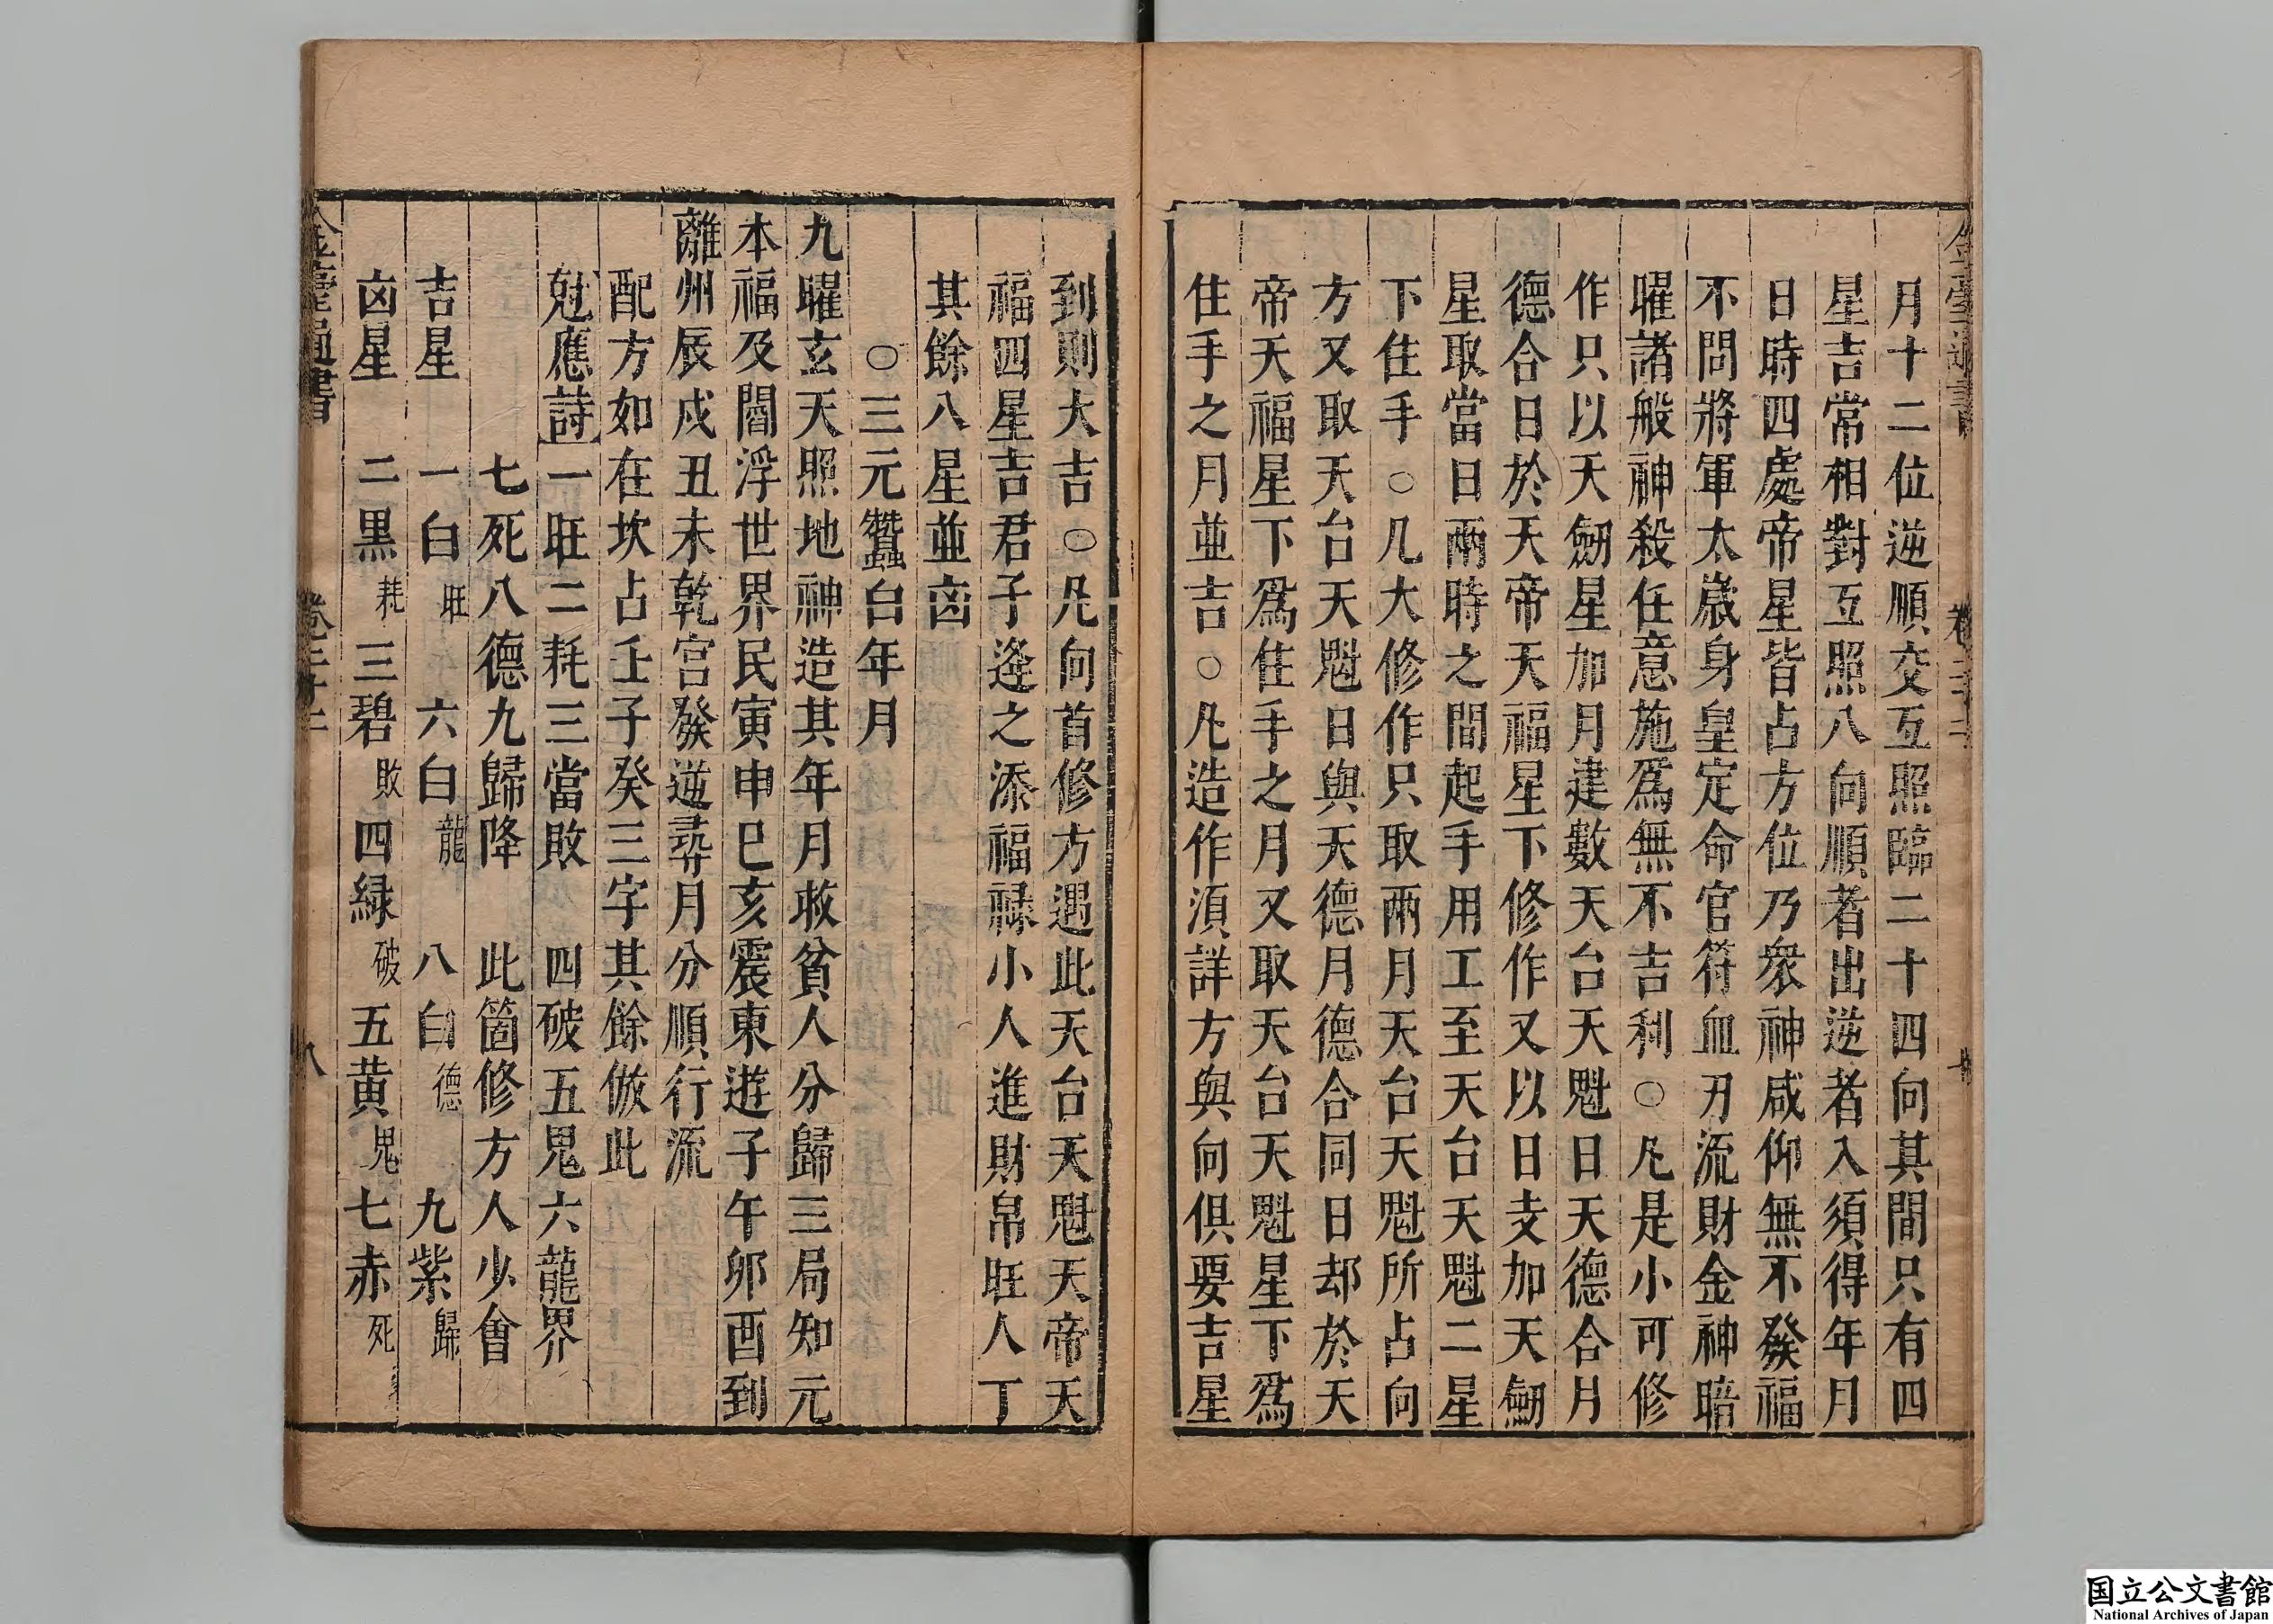 月十二位逆順交互照臨二十四向其間只有四
星吉常相對互照八向順者出逆者入須得年月
日時四處帝星皆占方位乃衆神咸仰無不發福
不問將軍太歲身皇定命官符血刃流財金神暗
曜諸般神殺任意施爲無不吉利○凡是小可修
作只以天劒星加月建數天台天魁日天德合月
德合日於天帝天福星下修作又以日支加天劒
星取當日兩時之間起手用工至天台天魁二星
下住手○凡大修作只取兩月天台天魁所占向
方又取天台天魁日與天德月德合同日却於天
帝天福星下爲住手之月又取天台天魁星下爲
住手之月並吉○凡造作須詳方與向俱要吉星
到則大吉○凡向首修方遇此天台天魁天帝天
福四星吉君子逢之添福祿小人進財帛旺人丁
其餘八星並凶
○三元蠶白年月
九曜玄天照地神造其年月救貧人分歸三局知元
本福及閻浮世界民寅申巳亥震東遊子午卯酉到
離州辰戌丑未乾宮發逆尋月分順行流
配方如在坎占壬子癸三字其餘倣此
尅應詩一旺二耗三當敗　四破五鬼六龍界
七死八德九歸降　此箇修方人少會
吉星　一白旺　六白龍　八白德　九紫歸
凶星　二黑耗三碧敗四緑破五黄鬼七赤死
八
国立公文書館
National Archives of Japan